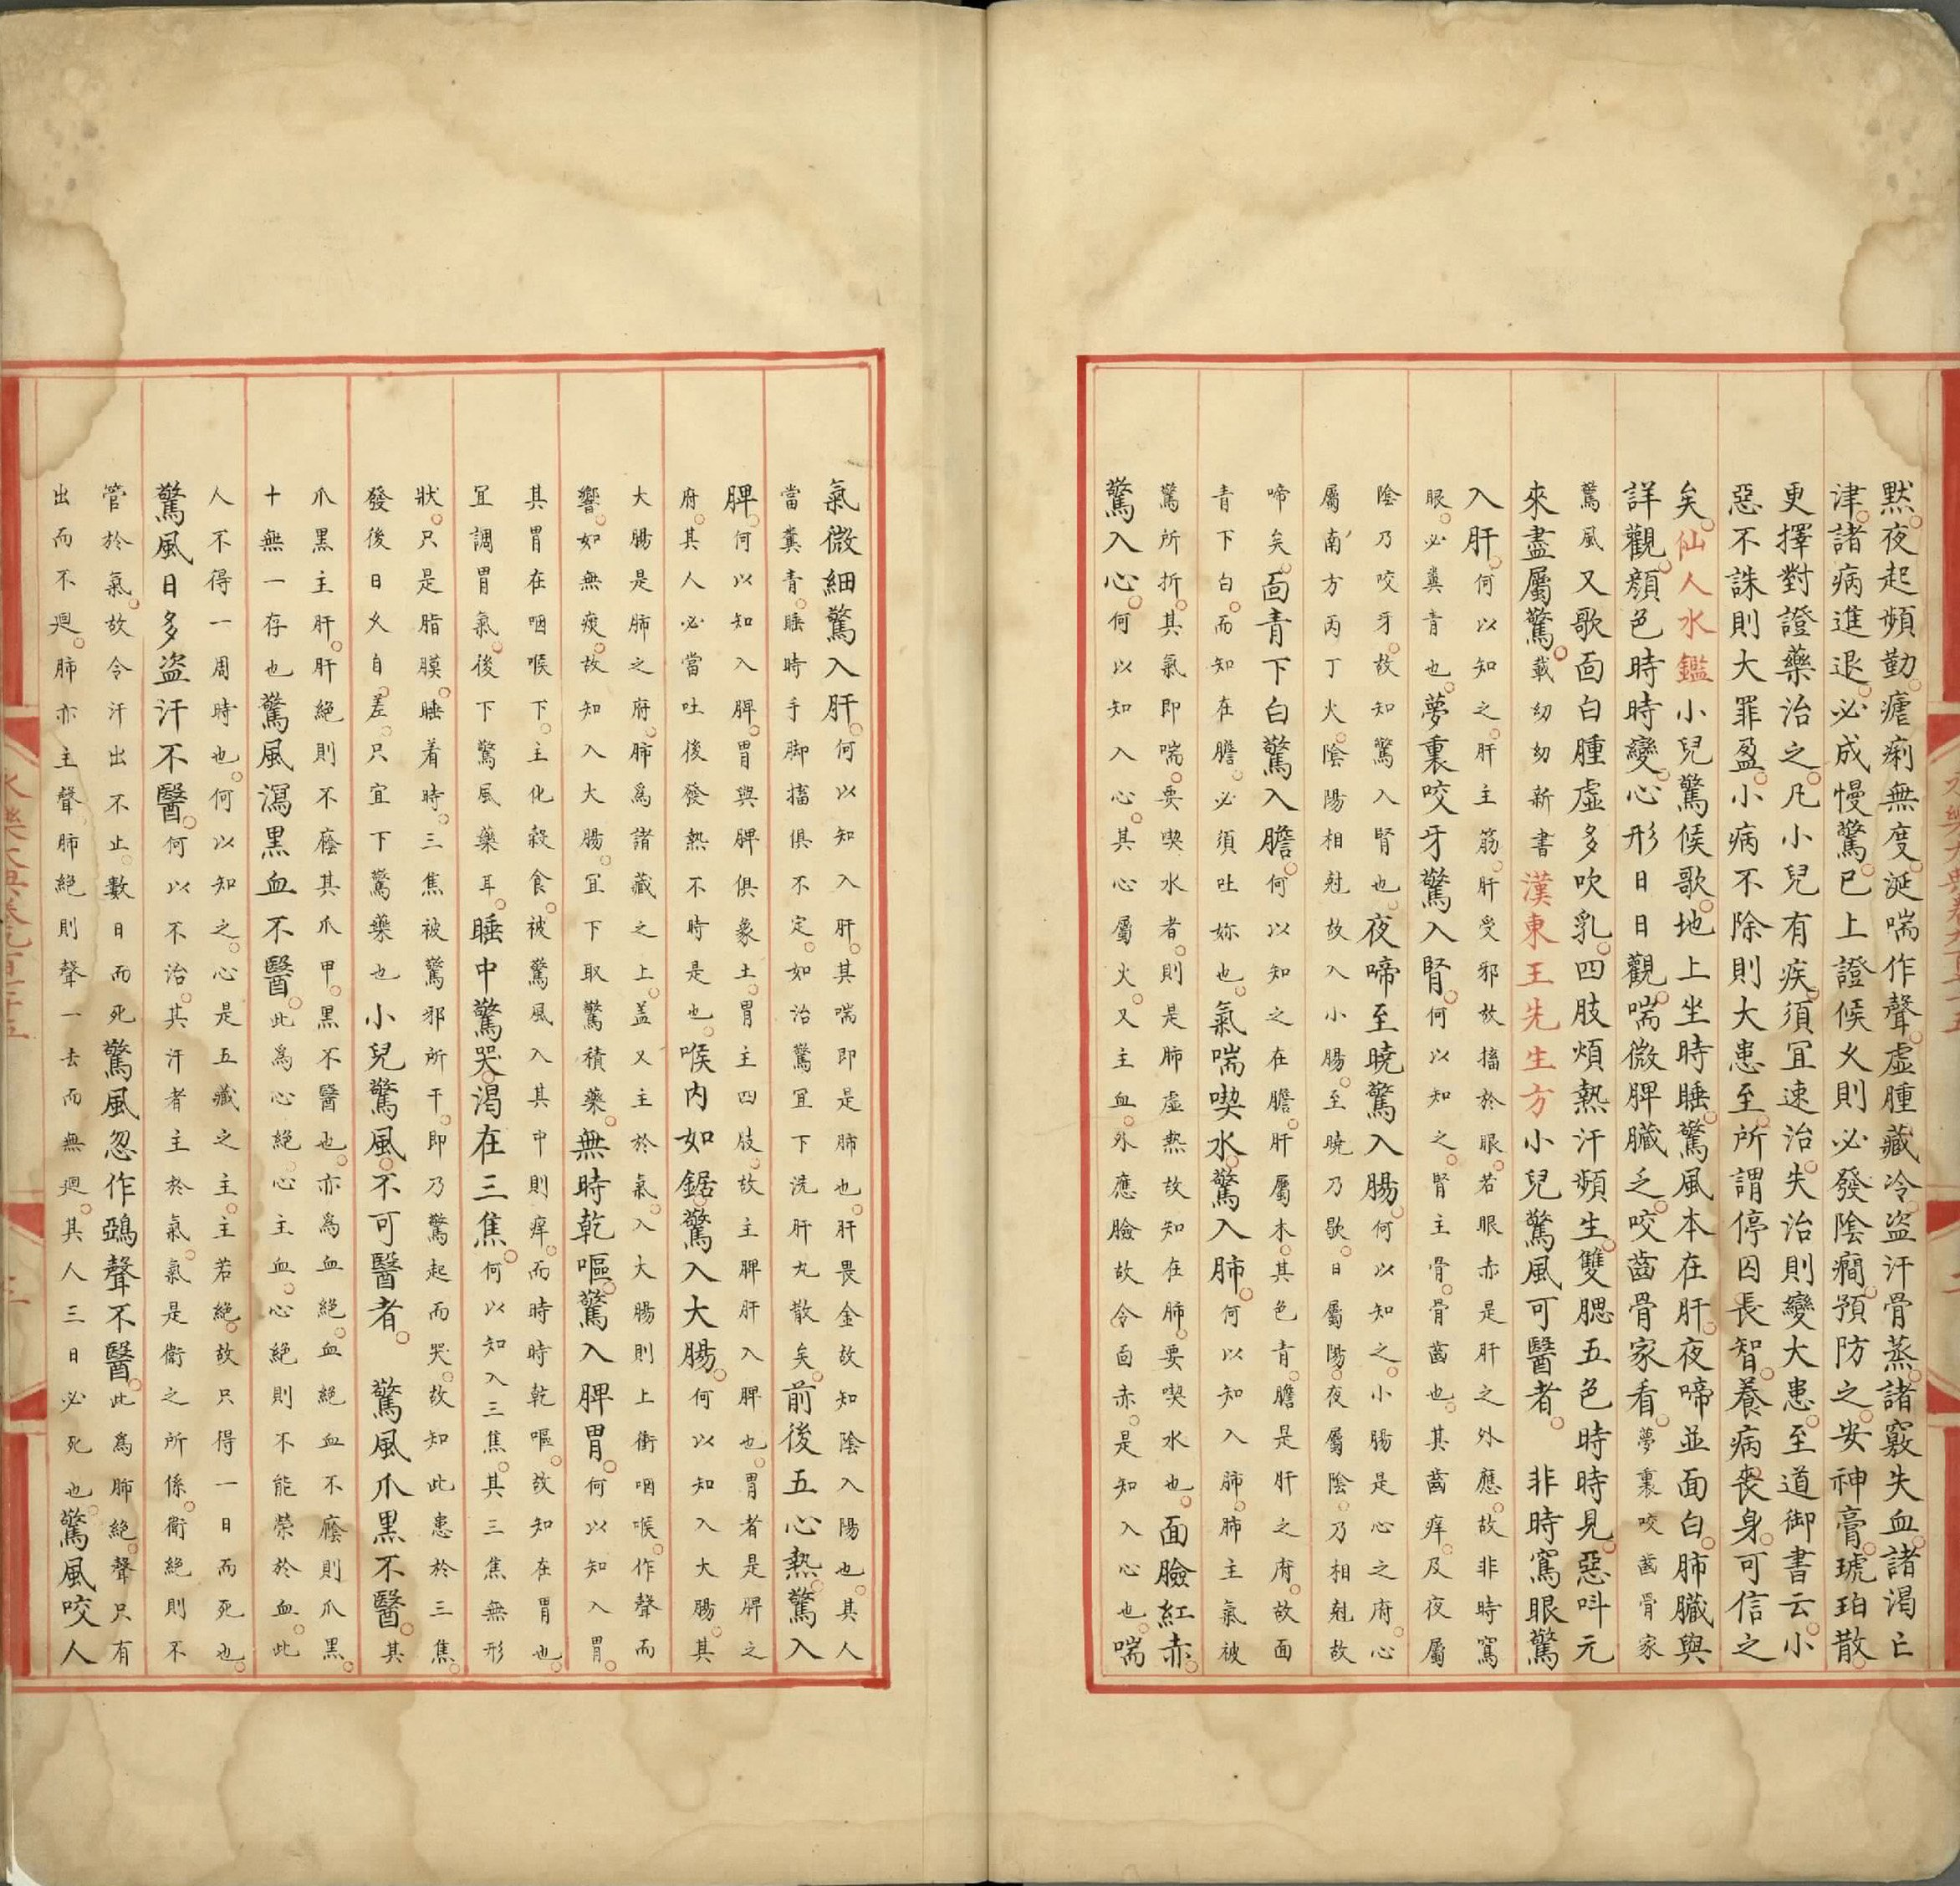 默夜起頻勤瘧痢無度涎喘作聲虛腫藏冷盜汗骨蒸諸竅失血諸渴亡
津諸病進退必成慢驚已上證候久則必發陰癎預防之安神膏琥珀散
更擇對證藥治之凡小兒有疾須冝速治失治則變大患至道御書云小
惡不誅則大罪盈小病不除則大患至所謂停囚長智養病喪身可信之
矣仙人水鑑小兒驚候歌地上坐時睡驚風本在肝夜啼並面白肺臟與
詳觀顔色時時變心形日日觀喘微脾臟乏咬齒骨家看夢裏咬齒骨家
驚風又歌面白腫虛多吹乳四肢煩熱汗頻生雙腮五色時時見惡呌元
來盡屬驚載幼幼新書漢東王先生方小兒驚風可醫者 非時窵眼驚
入肝何以知之肝主筋肝受邪故搐於眼若眼赤是肝之外應故非時窵
眼必糞青也夢裏咬牙驚入腎何以知之腎主骨骨齒也其齒痒及夜屬
陰乃咬牙故知驚入腎也夜啼至曉驚入腸何以知之小腸是心之府心
屬南方丙丁火陰陽相尅故入小腸至曉乃歇日屬陽夜屬陰乃相尅故
啼矣面青下白驚入膽何以知之在膽肝屬木其色青膽是肝之府故面
青下白而知在膽必須吐妳也氣喘喫水驚入肺何以知入肺肺主氣被
驚所折其氣即喘要喫水者則是肺虛熱故知在肺要喫水也面臉紅赤
驚入心何以知入心其心屬火又主血外應臉故令面赤是知入心也喘
氣微細驚入肝何以知入肝其喘即是肺也肝畏金故知陰入陽也其人
當糞青睡時手脚搐俱不定如治驚冝下洗肝丸散矣前後五心熱驚入
脾何以知入脾胃與脾俱象土胃主四肢故主脾肝入脾也胃者是脾之
府其人必當吐後發熱不時是也喉内如鋸驚入大腸何以知入大腸其
大腸是肺之府肺爲諸藏之上盖又主於氣入大腸則上衝咽喉作聲而
響如無痰故知入大腸冝下取驚積藥無時乾嘔驚入脾胃何以知入胃
其胃在咽喉下主化穀食被驚風入其中則痒而時時乾嘔故知在胃也
冝調胃氣後下驚風藥耳睡中驚哭渴在三焦何以知入三焦其三焦無形
狀只是脂膜睡着時三焦被驚邪所干即乃驚起而哭故知此患於三焦
發後日久自差只宜下驚藥也小兒驚風不可醫者 驚風爪黑不醫其
爪黑主肝肝絕則不廕其爪甲黑不醫也亦爲血絕血絕血不廕則爪黑
十無一存也驚風瀉黑血不醫此爲心絕心主血心絕則不能榮於血此
人不得一周時也何以知之心是五藏之主主若絕故只得一日而死也
驚風日多盜汗不醫何以不治其汗者主於氣氣是衛之所係衛絕則不
管於氣故令汗出不止數日而死驚風忽作鵶聲不醫此爲肺絕聲只有
出而不迴肺亦主聲肺絕則聲一去而無迴其人三日必死也驚風咬人